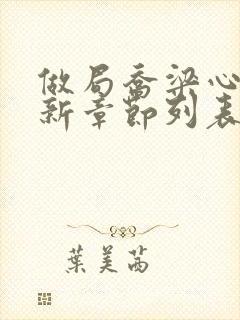 做局喬梁心
新章節列表
葉美茜